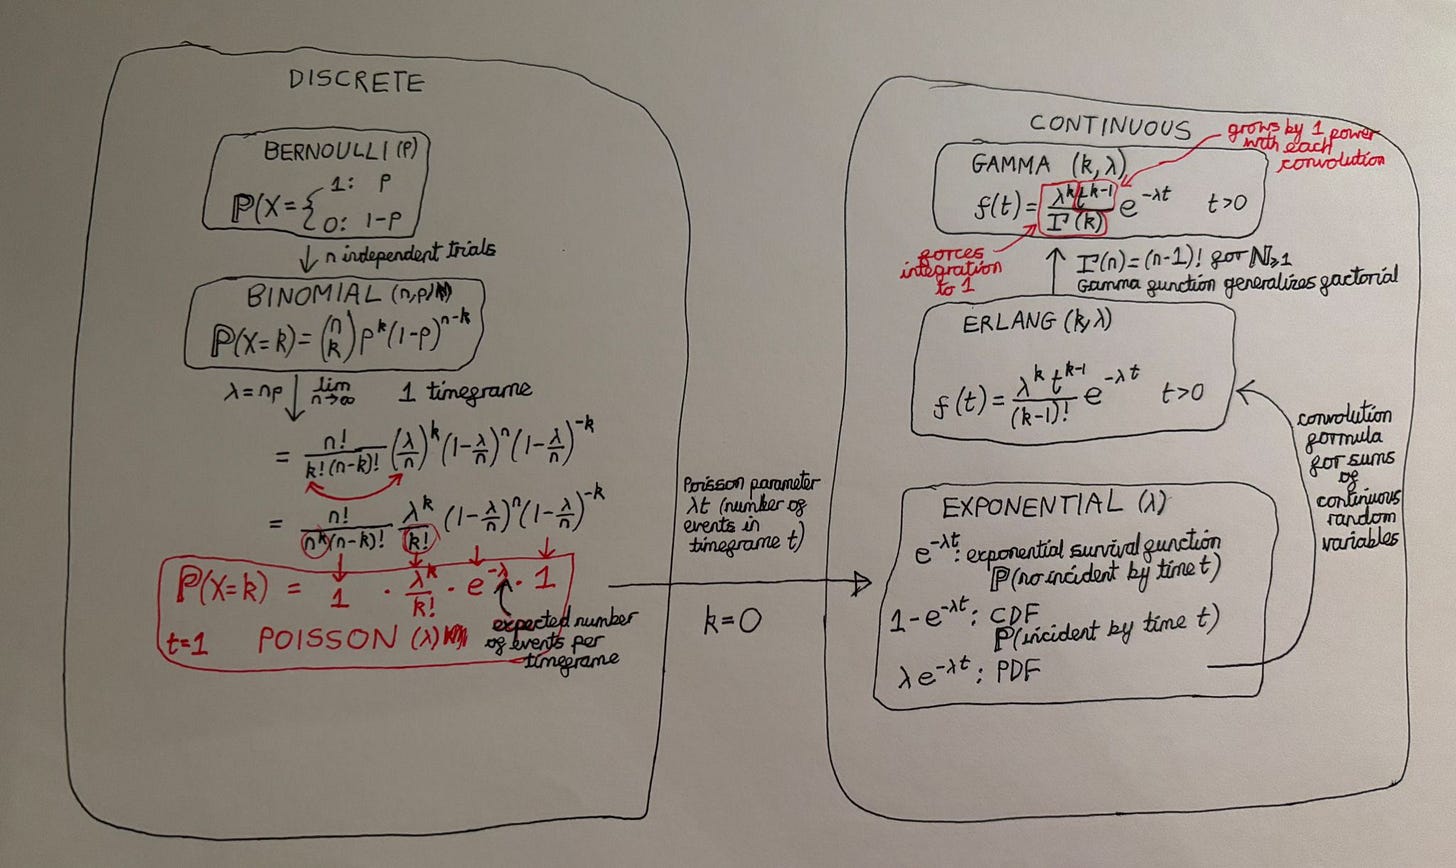 DISCRETE
BERNOULLI (p)
ℙ(X = { 1: p
0: 1-p
n independent trials
BINOMIAL (n,p)
ℙ(X=k) = (n k) p^k (1-p)^{n-k}
λ = np lim n→∞ 1 timeframe
= n!/(k!(n-k)!) (λ/n)^k (1-λ/n)^n (1-λ/n)^{-k}
= n!/(n^k(n-k)!) λ^k/k! (1-λ/n)^n (1-λ/n)^{-k}
ℙ(X=k) = 1 · λ^k/k! · e^{-λ} · 1
t=1 POISSON (λ)
expected number
of events per
timeframe
Poisson parameter
λt (number of
events in
timeframe t)
k=0
CONTINUOUS
grows by 1 power
with each
convolution
GAMMA (k, λ)
f(t) = λ^k t^{k-1}/Γ(k) e^{-λt} t>0
forces
integration
to 1
Γ(n) = (n-1)! for ℕ≥1
Gamma function generalizes factorial
ERLANG (k, λ)
f(t) = λ^k t^{k-1}/(k-1)! e^{-λt} t>0
convolution
formula
for sums
of
continuous
random
variables
EXPONENTIAL (λ)
e^{-λt}: exponential survival function
ℙ(no incident by time t)
1-e^{-λt}: CDF
ℙ(incident by time t)
λe^{-λt}: PDF